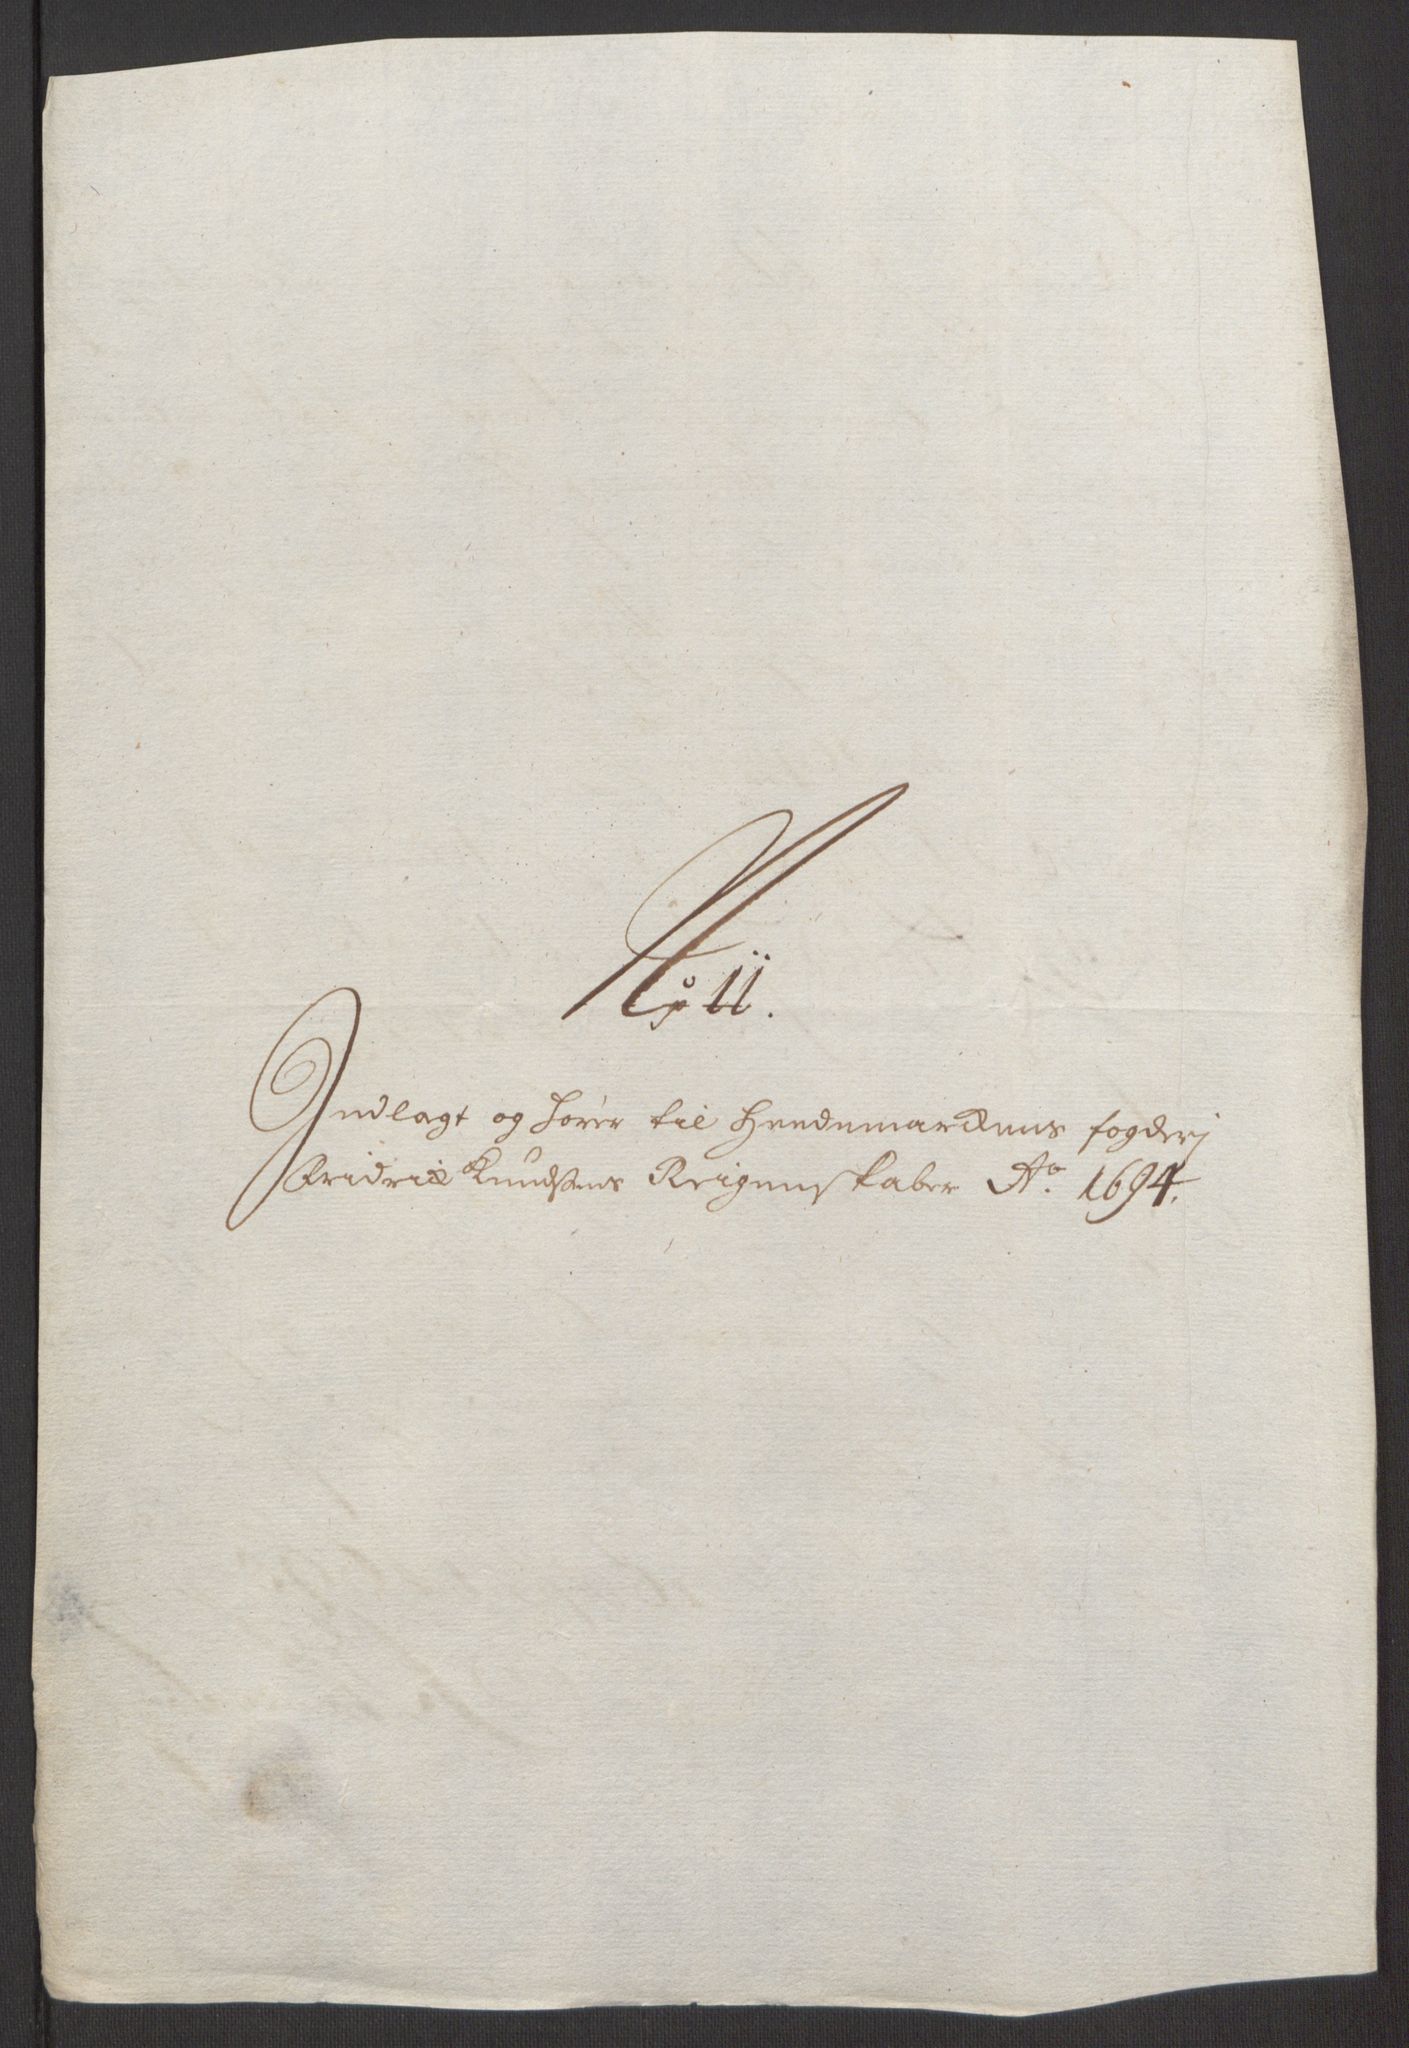 No 11.
Indlagt og hører til Heedemarckens fogderj
Fridrix Knudsens Reigenskaber Ao. 1694.